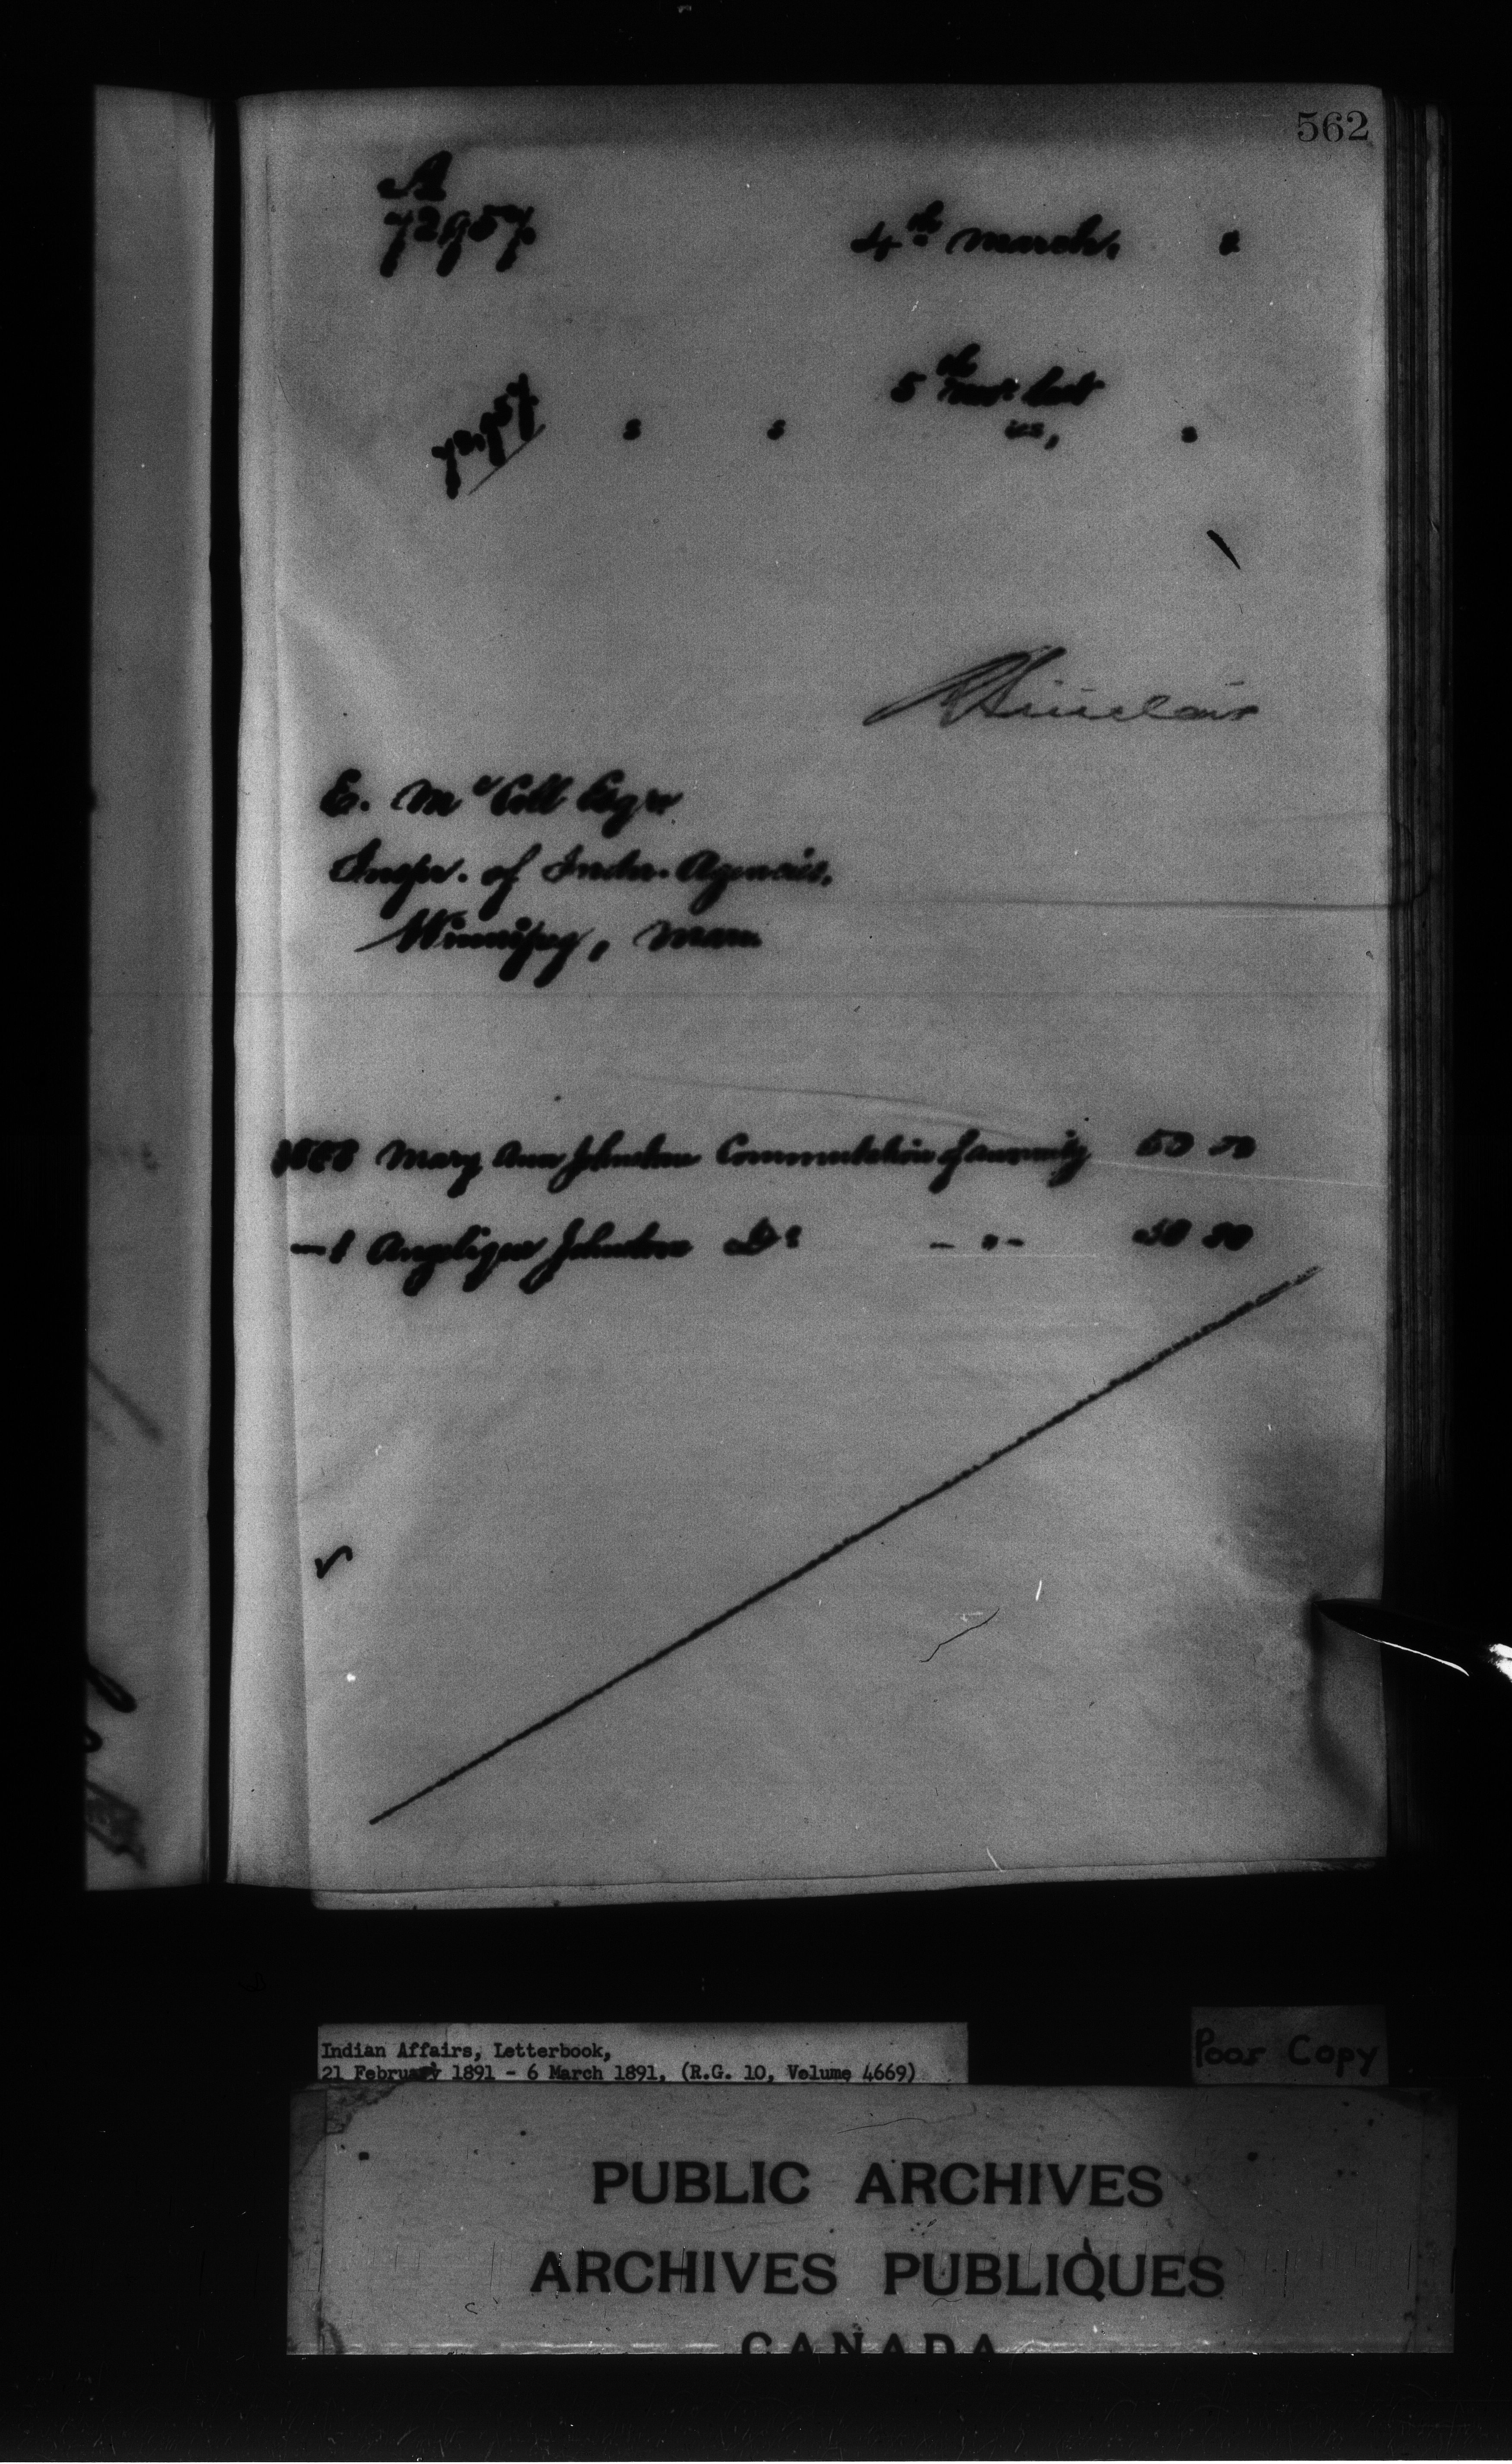 562
A
72957
4th March, 1
72957 s s 5th
us, s
RSinclair
E. McColl Esqre
Inspr. of Indn. Agencies,
Winnipeg, Man.
Mary Ann Johnstone Commutation of annuity 50 00
— 1 Angelique Johnstone Do — " — 50 00
Indian Affairs, Letterbook,
21 February 1891 - 6 March 1891, (R.G. 10, Volume 4669)
Poor Copy
PUBLIC ARCHIVES
ARCHIVES PUBLIQUES
CANADA